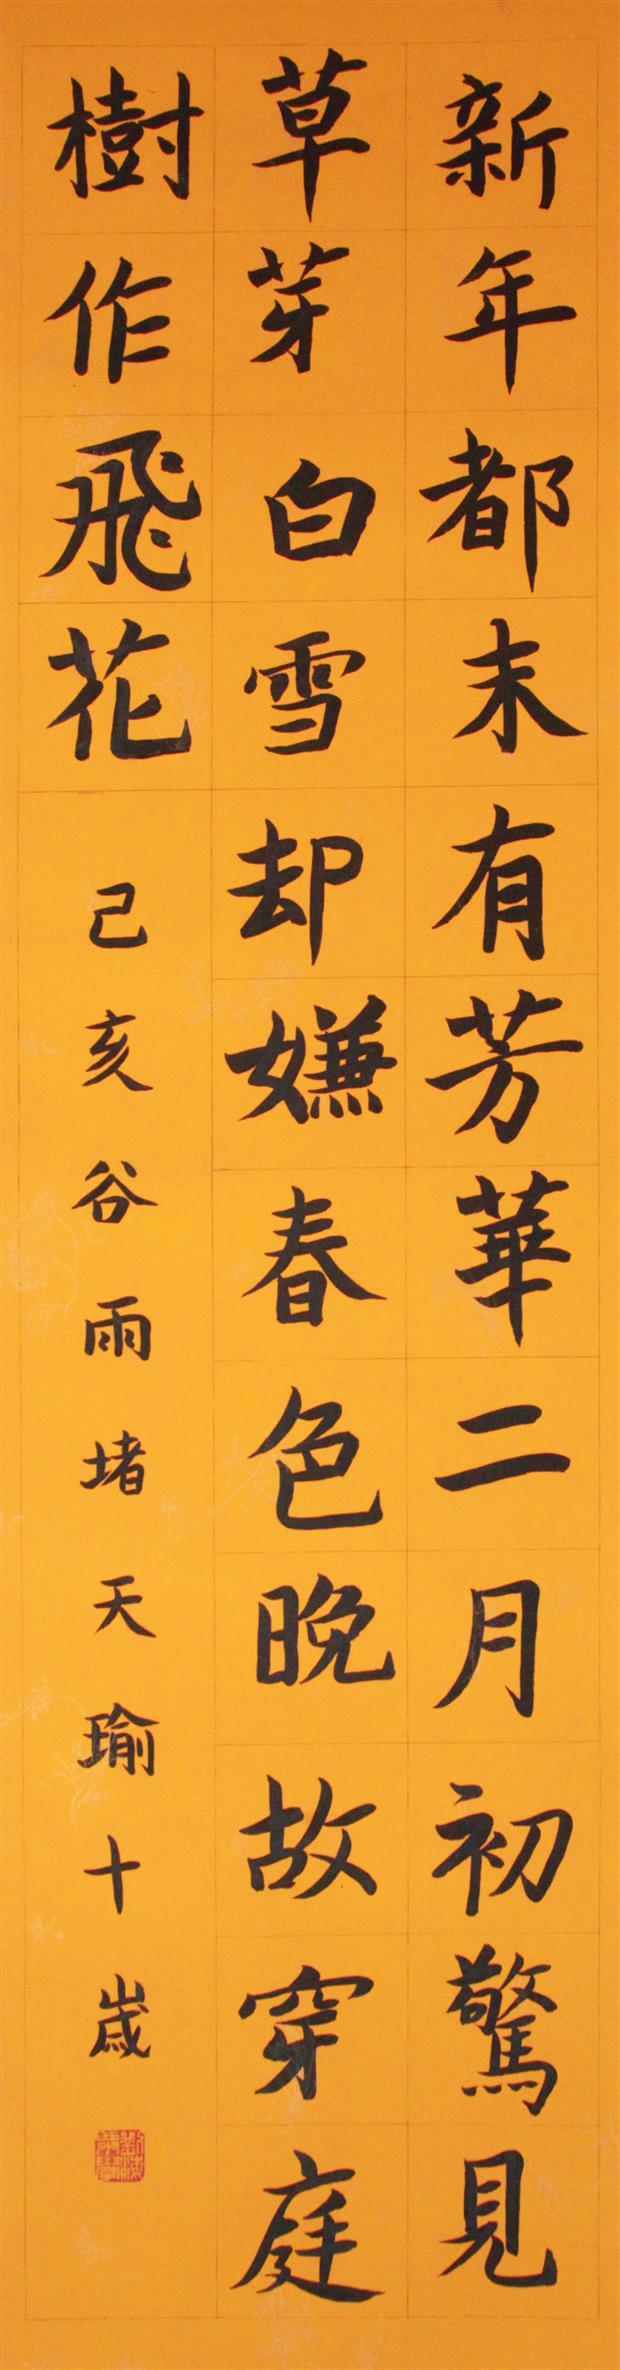 新年都末有芳華二月初驚見
草芽白雪却嫌春色晚故穿庭
樹作飛花
己亥谷雨堵天瑜十歲